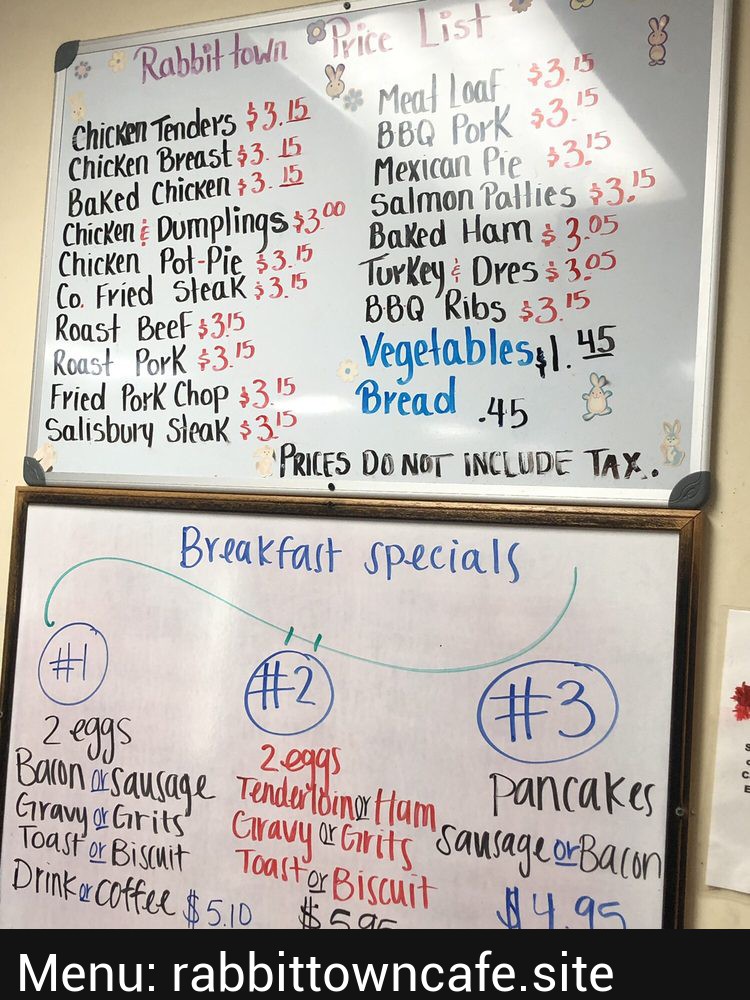 Rabbit town Price List
Chicken Tenders $3.15
Chicken Breast $3.15
Baked Chicken $3.15
Chicken & Dumplings $3.00
Chicken Pot-Pie $3.15
Co. Fried Steak $3.15
Roast Beef $3.15
Roast Pork $3.15
Fried Pork Chop $3.15
Salisbury Steak $3.15
Meat Loaf $3.15
BBQ Pork $3.15
Mexican Pie $3.15
Salmon Patties $3.15
Baked Ham $3.05
Turkey & Dres $3.05
BBQ Ribs $3.15
Vegetables $1.45
Bread .45
PRICES DO NOT INCLUDE TAX.
Breakfast specials
#1
2 eggs
Bacon or sausage
Gravy or Grits
Toast or Biscuit
Drink or coffee $5.10
#2
2 eggs
Tenderloin or Ham
Gravy or Grits
Toast or Biscuit
$5.95
#3
pancakes
sausage or Bacon
$4.95
Menu: rabbittowncafe.site